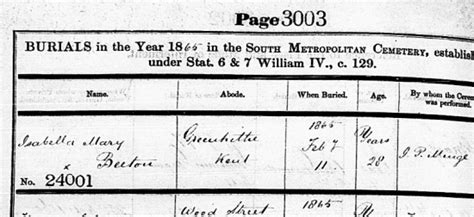 Page 3003
BURIALS in the Year 1865 in the SOUTH METROPOLITAN CEMETERY, establis
under Stat. 6 & 7 William IV., c. 129.
Name. Abode. When Buried. Age. By whom the Cere
was performed.
Isabella Mary Beeton Greenhithe Kent 1865 Feb 7 11 Years 28
No. 24001
Wood Street 1865